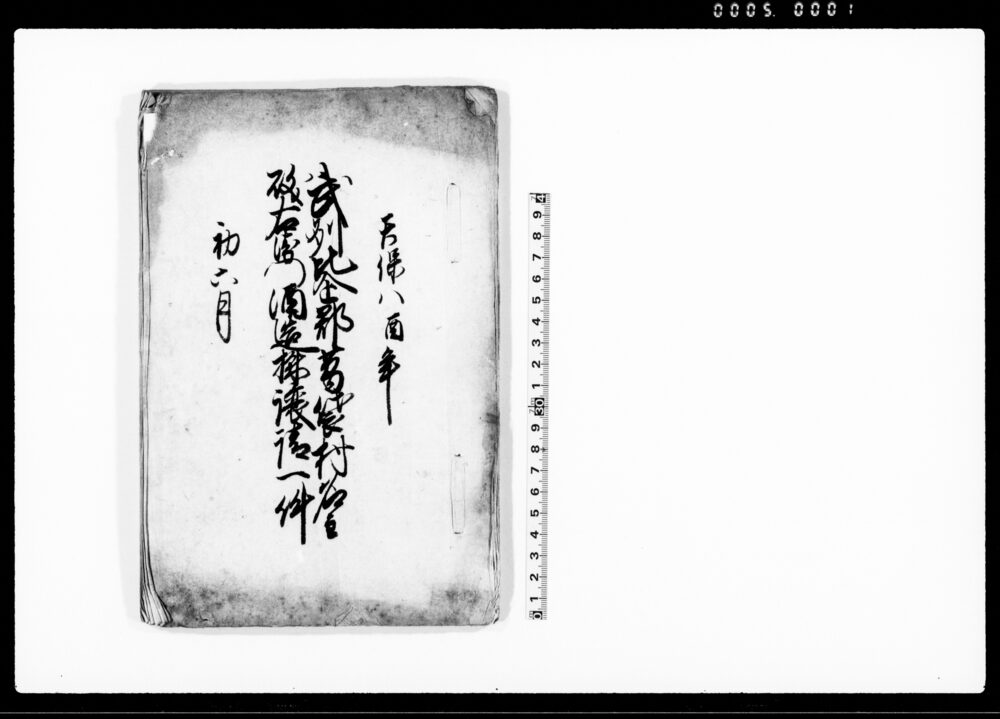 0005. 0001
天保八酉年
武州比企郡葛袋村名主
磯右衛門酒造株譲請一件
初六月